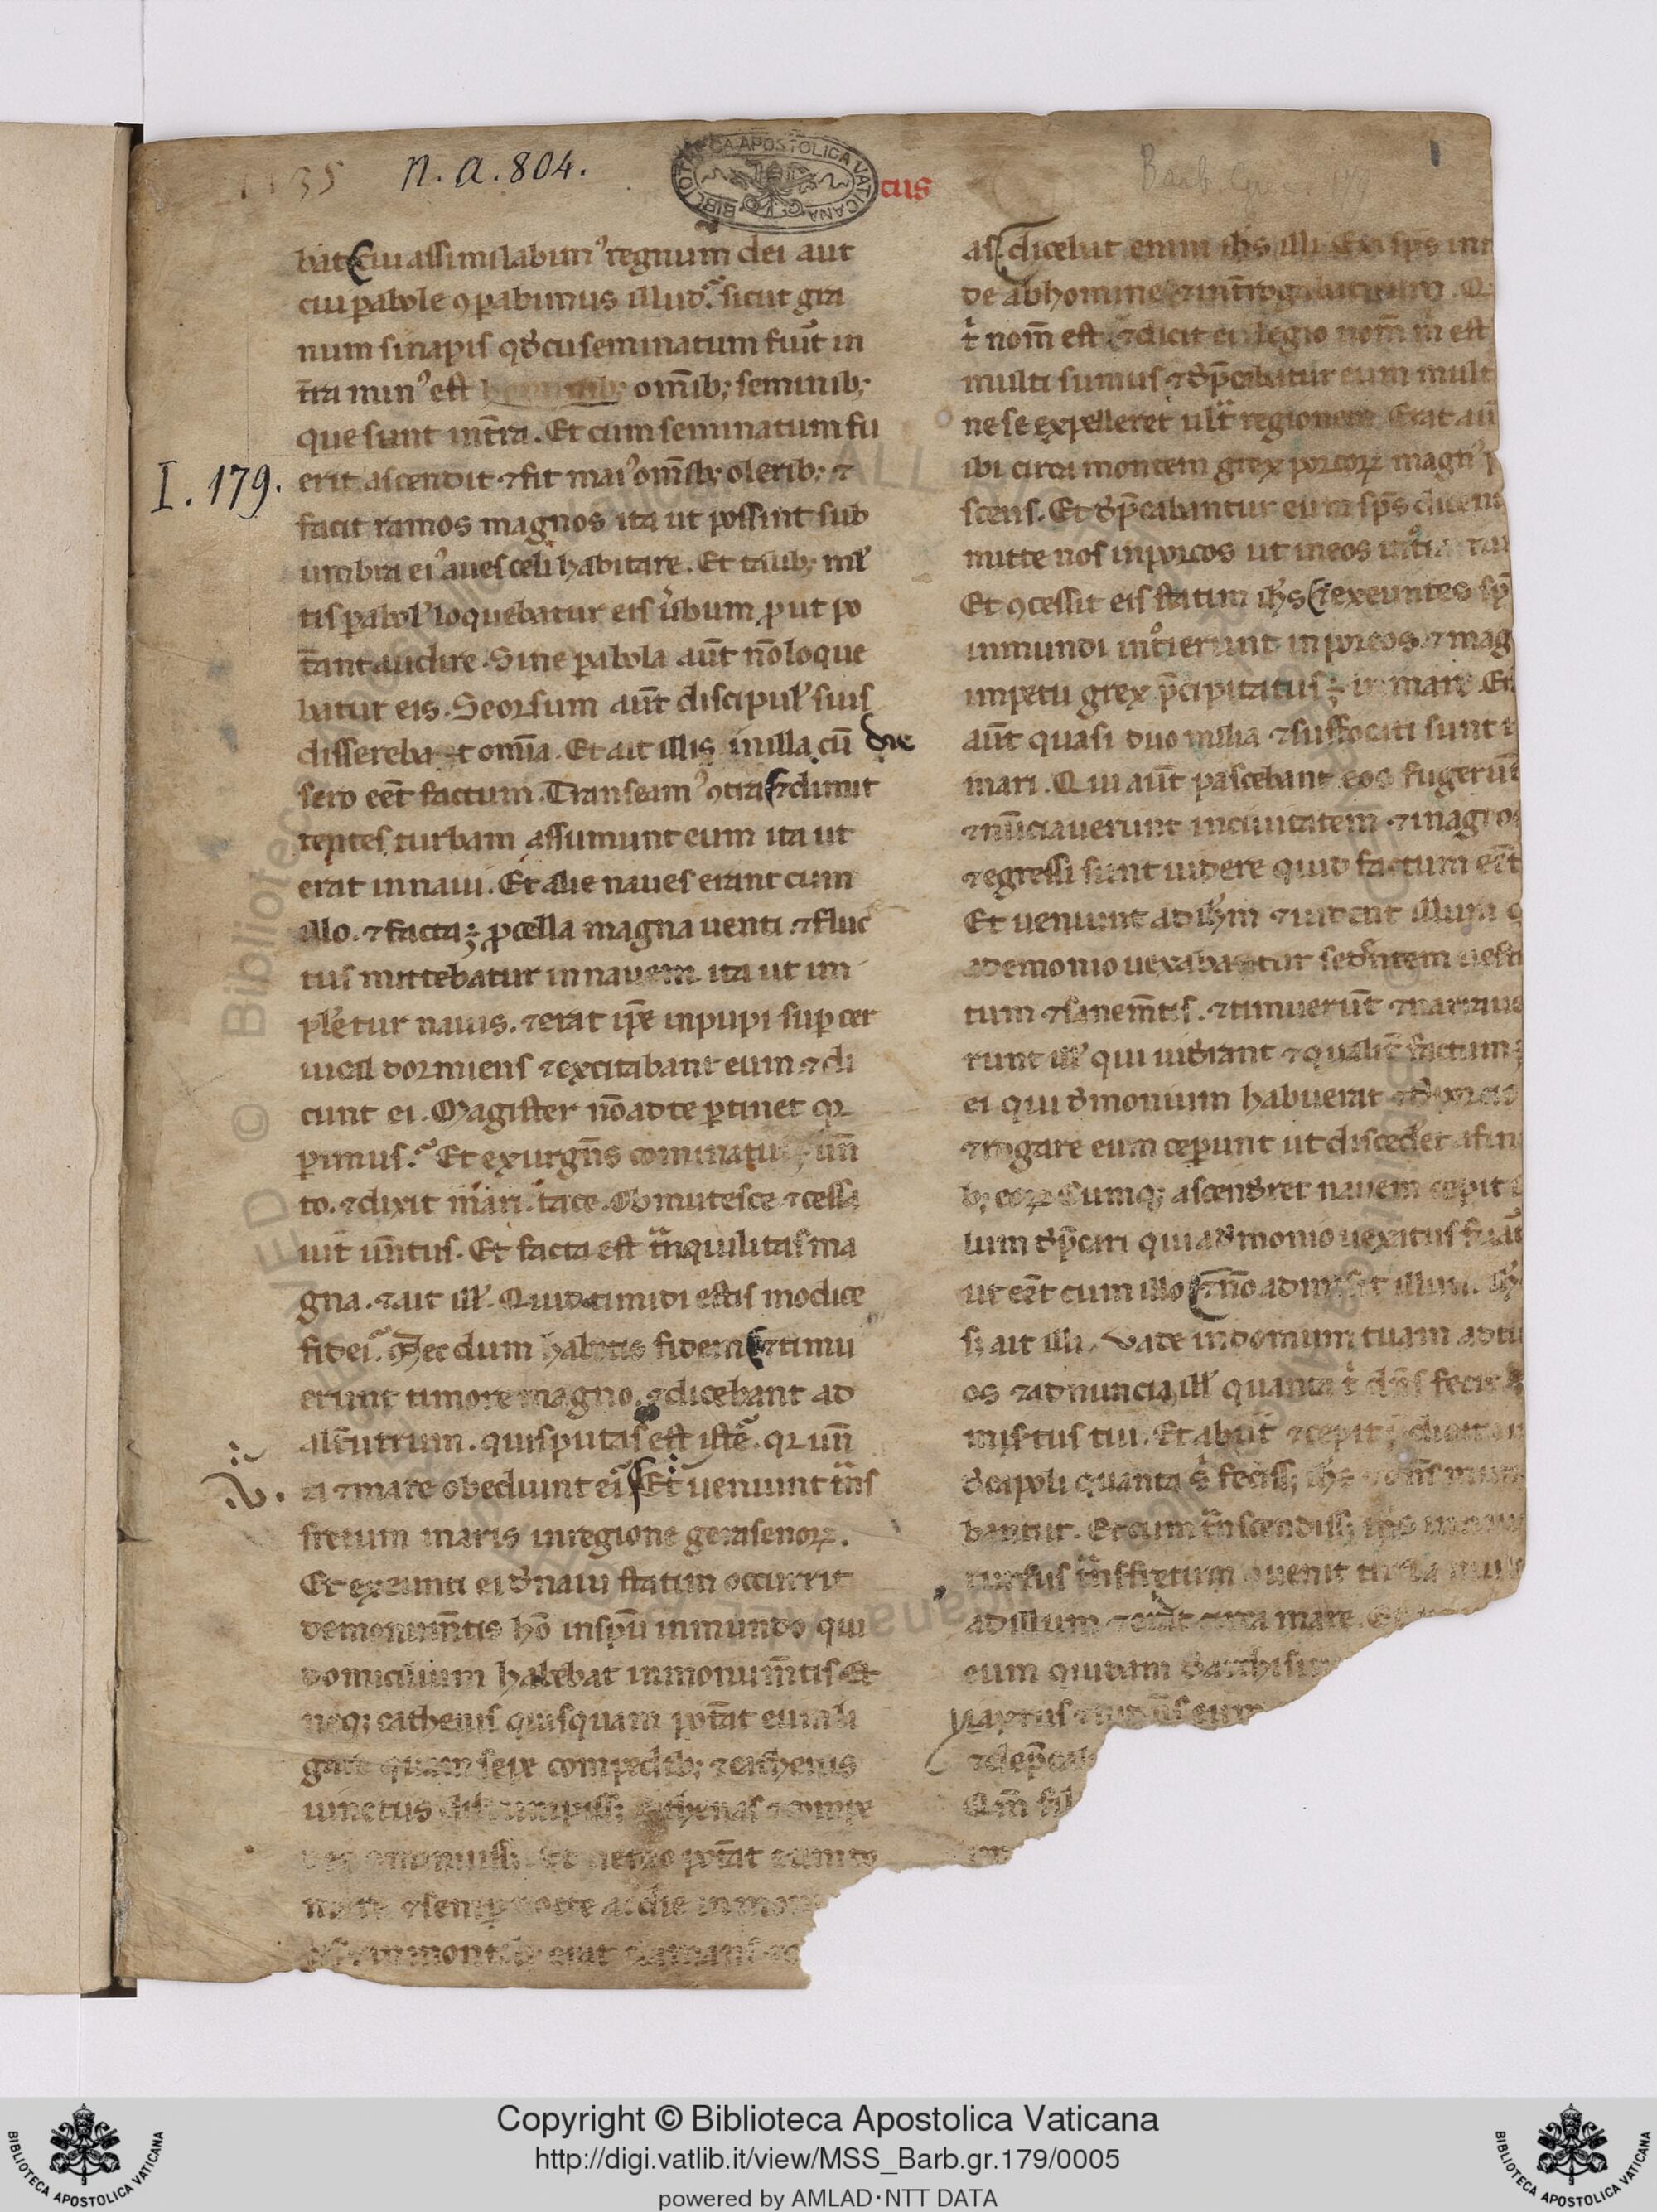 n. a. 804.
BIBLIOTECA APOSTOLICA VATICANA
cus
Barb. Gr.
1
I. 179.
bat Cui assimilabim᾽ regnum dei aut
cui pabole ꝯpabimus illud. sicut gra
num sinapis qđ cu seminatum fuit in
t̄ra min᾽ est om̄ib; seminib;
que sunt in t̄ra. Et cum seminatum fu
erit ascendit ⁊ fit mai᾽ om̄ib; olerib; ⁊
facit ramos magnos ita ut possint sub
umbra ei᾽ aues celi habitare. Et talib; ml᾽
tis pabol᾽ loquebatur eis ŭbum put po
t̄ant audire. Sine pabola aūt nō loque
batur eis. Seorsum aūt discipul᾽ suis
disserebat om̄ia. Et ait illis in illa cū die
sero eēt factum. Transeam᾽ ꝯtra ⁊ dimit
tentes turbam assumunt eum ita ut
erat in naui. Et alie naues erant cum
illo. ⁊ facta ꝓcella magna uenti ⁊ fluc
tus mittebatur in nauem ita ut im
pletur nauis. ⁊ erat ip̄e in pupi sup cer
uical dormiens ⁊ excitabant eum ⁊ di
cunt ei. Magister nō ad te ptinet qꝛ
pimus. Et exurgn̄s cominatus un̄
to. ⁊ dixit mari. tace. Obmutesce ⁊ cessa
uit un̄tus. Et facta est tnquilitas ma
gna. ⁊ ait ill᾽. Quid timidi estis modice
fidei. Nec dum habetis fidem ⁊ timu
erunt timore magno. ⁊ dicebant ad
alt̄utrum. quis putas est iste. qꝛ un̄
ti ⁊ mare obediunt ei Et ueniunt tns
V.
fretum maris in regione gerasenoꝝ.
Et exeunti ei đ naui statim occurrit
đ monum̄tis hō in spū inmundo qui
domicilium habebat in monum̄tis Et
neq; cathenis quisquam pot̄at eum li
gare quam sepe compedib; ⁊ cathenis
uinctus cathenas ⁊ compe
nemo pot̄at eum do
⁊ semp nocte ac die in mon
montib; erat clamans
as Dicebat enim ih̄s illi Exi sp̄s inm
de ab homine ⁊ int̄rogabat eum. Q
t nom̄ est ⁊ dicit ei legio nom̄ m est
multi sumus ⁊ đp̄cabatur eum mult
ne se expelleret ult regionem. Erat aū
ibi circa montem grex porcoꝝ magn᾽ p
scens. Et đp̄cabantur eum sp̄s dicent
mitte nos in porcos ut in eos
Et ꝯcessit eis statim ih̄s ⁊ exeuntes sp̄
inmundi intierunt in porcos. ⁊ mag
impetu grex p̄cipitatus in mare
aūt quasi duo milia ⁊ suffocati sunt
mari. Qui aūt pascebant eos fugerūt
⁊ nūciauerunt in ciuitatem ⁊ in agros
⁊ egressi sunt uidere quid factum eēt
Et ueniunt ad ih̄m ⁊ uident illum q
a demonio uexabatur seđntem uesti
tum ⁊ sane m̄tis. ⁊ timuerūt ⁊ narraue
runt ill᾽ qui uiđrant ⁊ qualit̄ factum
ei qui đmonium habuerat ⁊ đ porcis
⁊ rogare eum ceperunt ut discederet a fini
b; eoꝝ Cumq; ascenđret nauem cepit
lum đp̄cari qui a đmonio uexatus fuat
ut eēt cum illo ⁊ nō admisit illum. ih̄
s; ait illi. Vade in domum tuam ad tu
os ⁊ adnuncia ill᾽ quanta t dn̄s fecit
misertus tui. Et abiit ⁊ cepit
đcapoli quanta fecis; ih̄s ⁊ om̄s
bantur. Et cum tnscendiss; ih̄s
rursus tns fretum ⁊ uenit turba mul
ad illum ⁊ erat circa mare.
eum quidam đ archisi
nayrus ⁊ uiđns eum
⁊ dep̄ca
Qm̄ fil
Copyright © Biblioteca Apostolica Vaticana
http://digi.vatlib.it/view/MSS_Barb.gr.179/0005
powered by AMLAD·NTT DATA
BIBLIOTECA APOSTOLICA VATICANA
BIBLIOTECA APOSTOLICA VATICANA